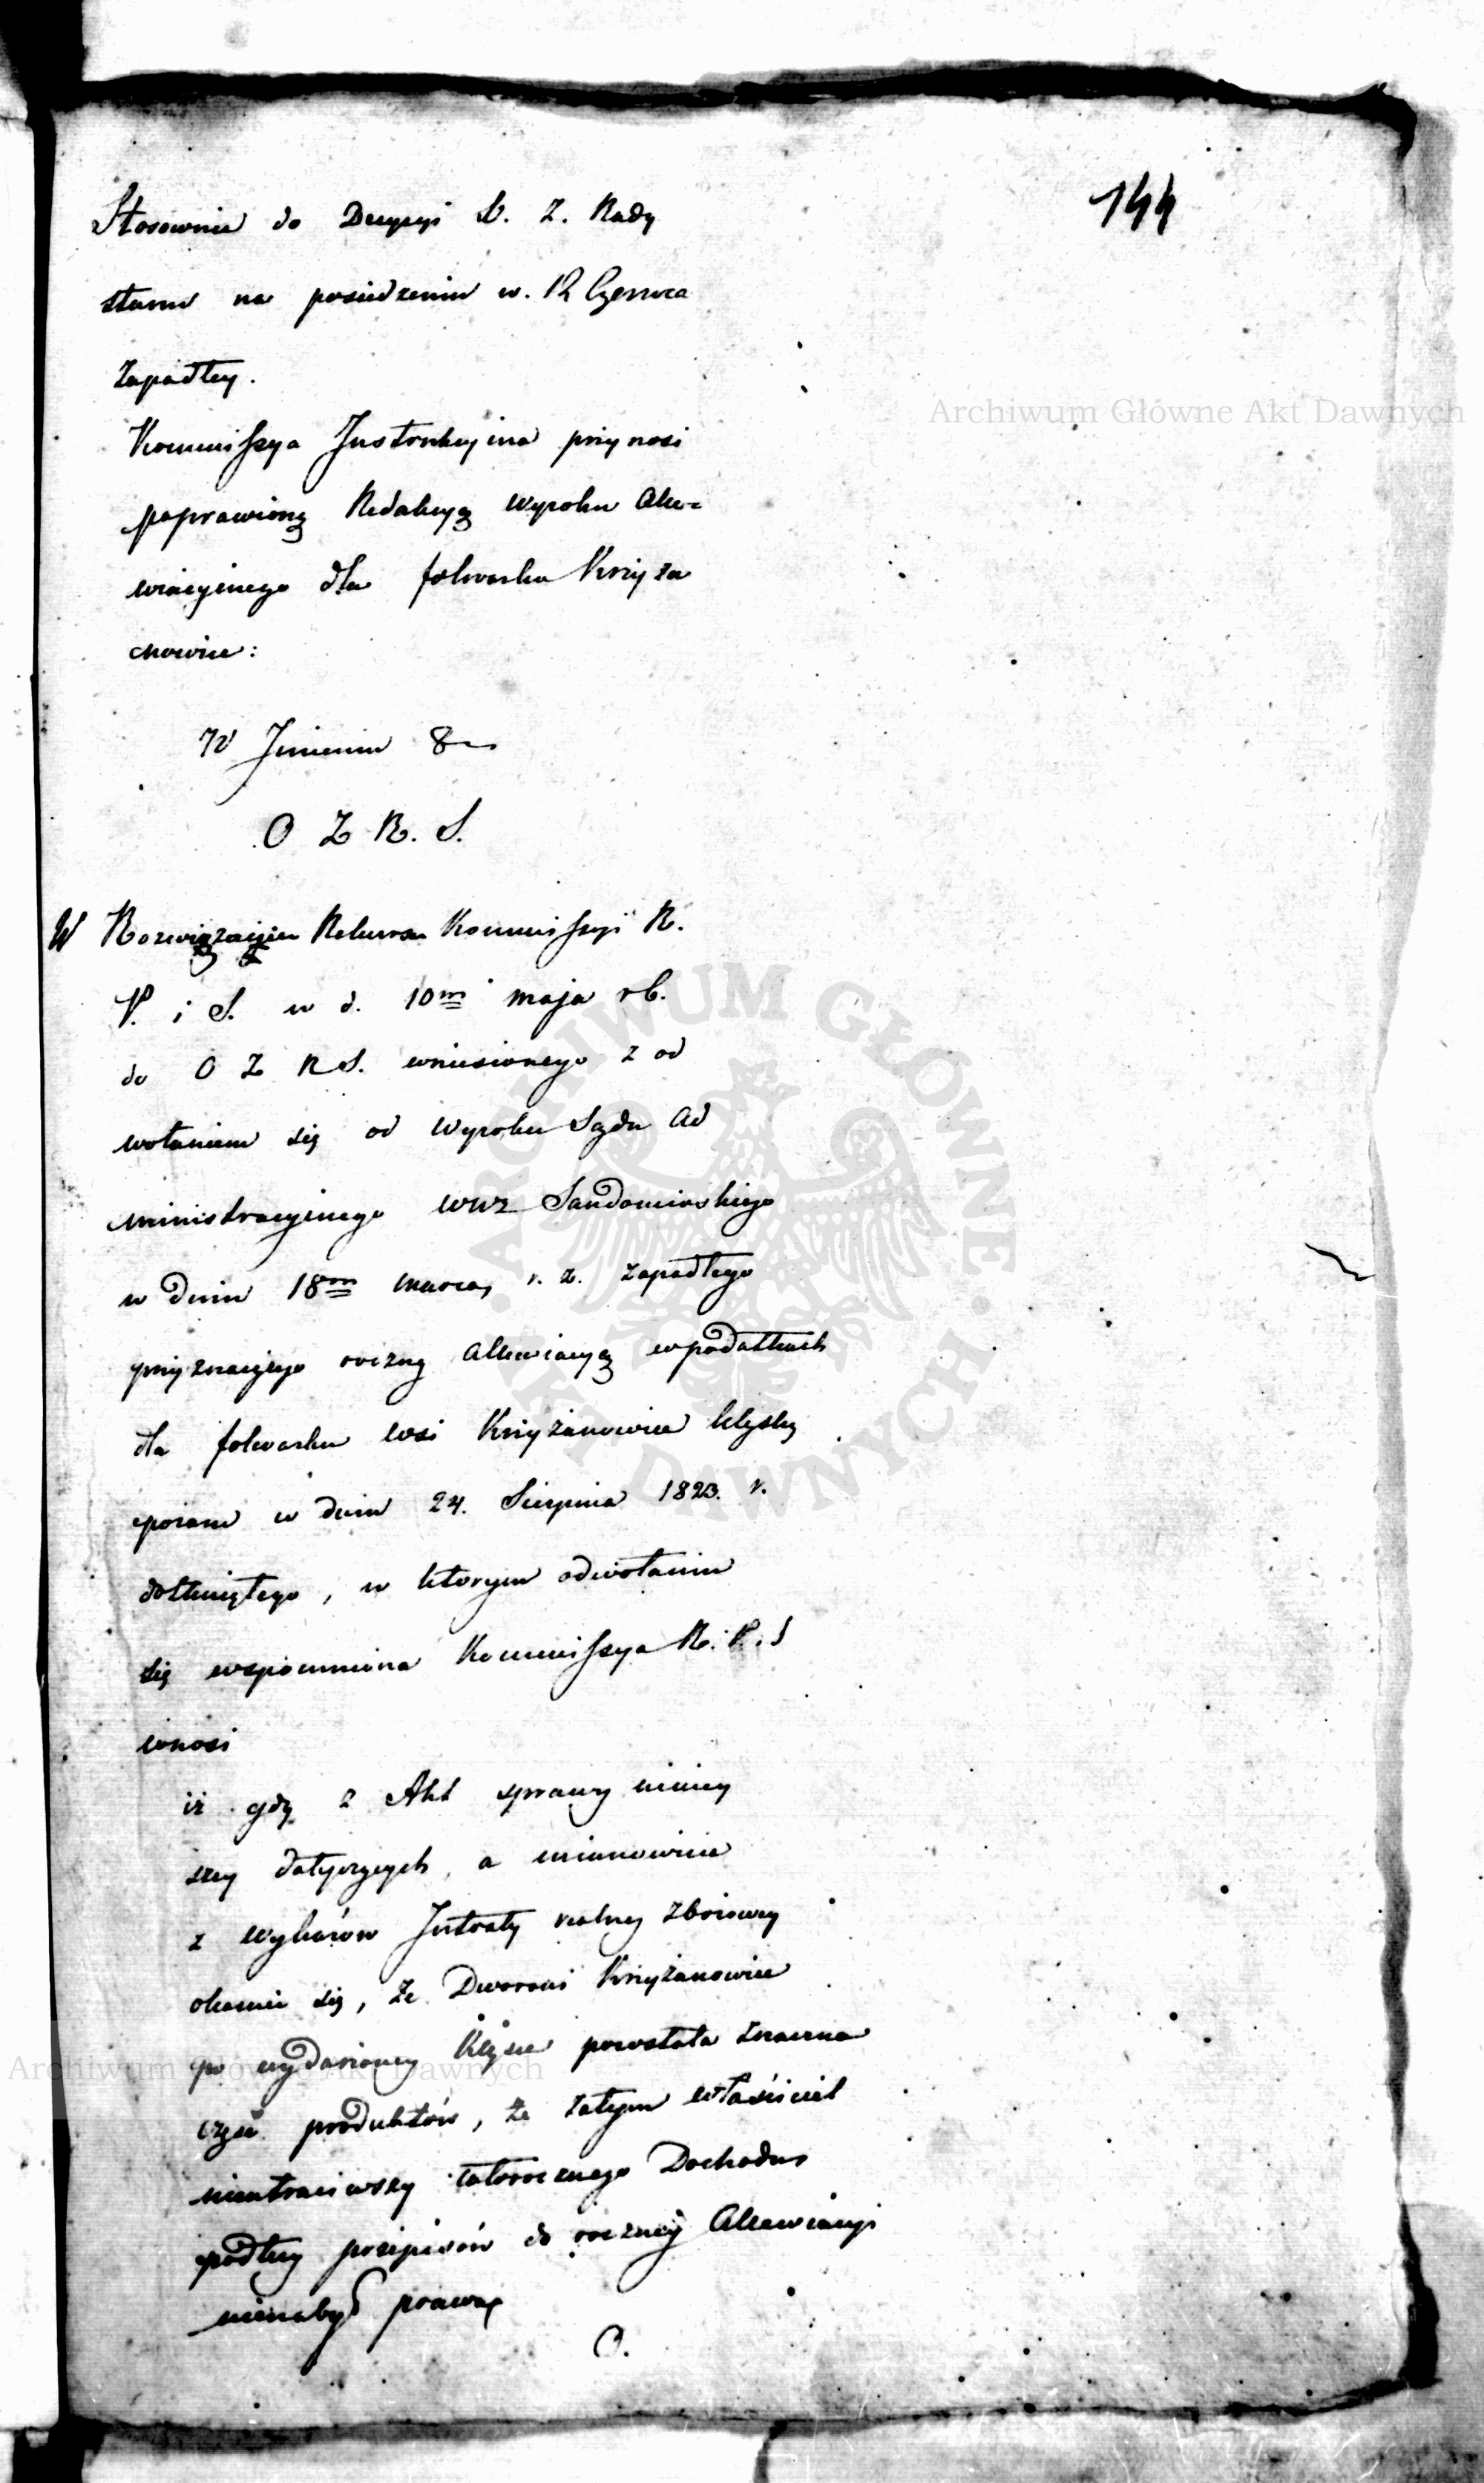 144
Stosownie do Decyzyi O. Z. Rady
stanu na posiedzeniu w. 12 Czerwca
zapadłey.
Kommissya Instrukcyina przynosi
poprawioną Redakcyą wyroku Alle=
wiacyinego dla folwarku Krzyża
nowice:
W Imieniu
O Z R. S.
W Rozwiązaniu Rekursu Kommissyi R.
P. i S. w d. 10m maja rb.
do O Z R S. wniesionego z od
wołaniem się od wyroku Sądu Ad
ministracyinego wwz Sandomirskiego
w dniu 18m marca r. z. zapadłego
przyznaiącego roczną allewiacyą w podatkach
dla folwarku wsi Krzyżanowice klęską
pożaru w dniu 24. Sierpnia 1823. r.
dotkniętego, w którym odwołaniu
się wspomniona Kommissya R. P. S
wnosi
iż gdy z Akt sprawy niniey
szey dotyczących, a mianowicie
z wykazów Intraty realney zbożowey
okazuie się, że Dworowi Krzyżanowice
po wydarzoney klęsce powstała znaczna
część produktów, że zatym właściciel
nieutraciwszy całorocznego Dochodu
podług przepisów do roczney Allewiacyi
nienabył prawa,
O.
Archiwum Główne Akt Dawnych
Archiwum Główne Akt Dawnych
ARCHIWUM GŁÓWNE AKT DAWNYCH